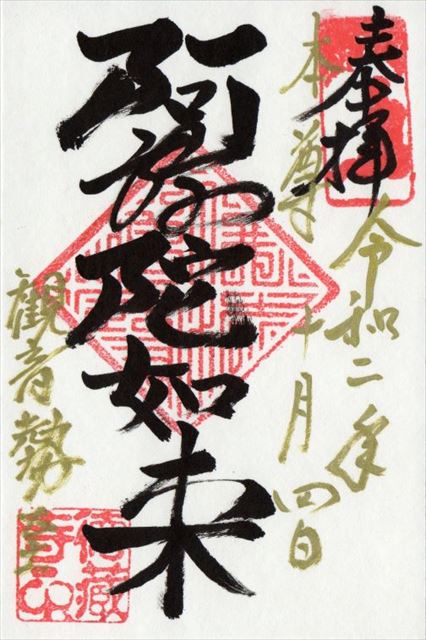 奉拝
令和二年
本尊
十月四日
阿弥陀如来
觀音勢至